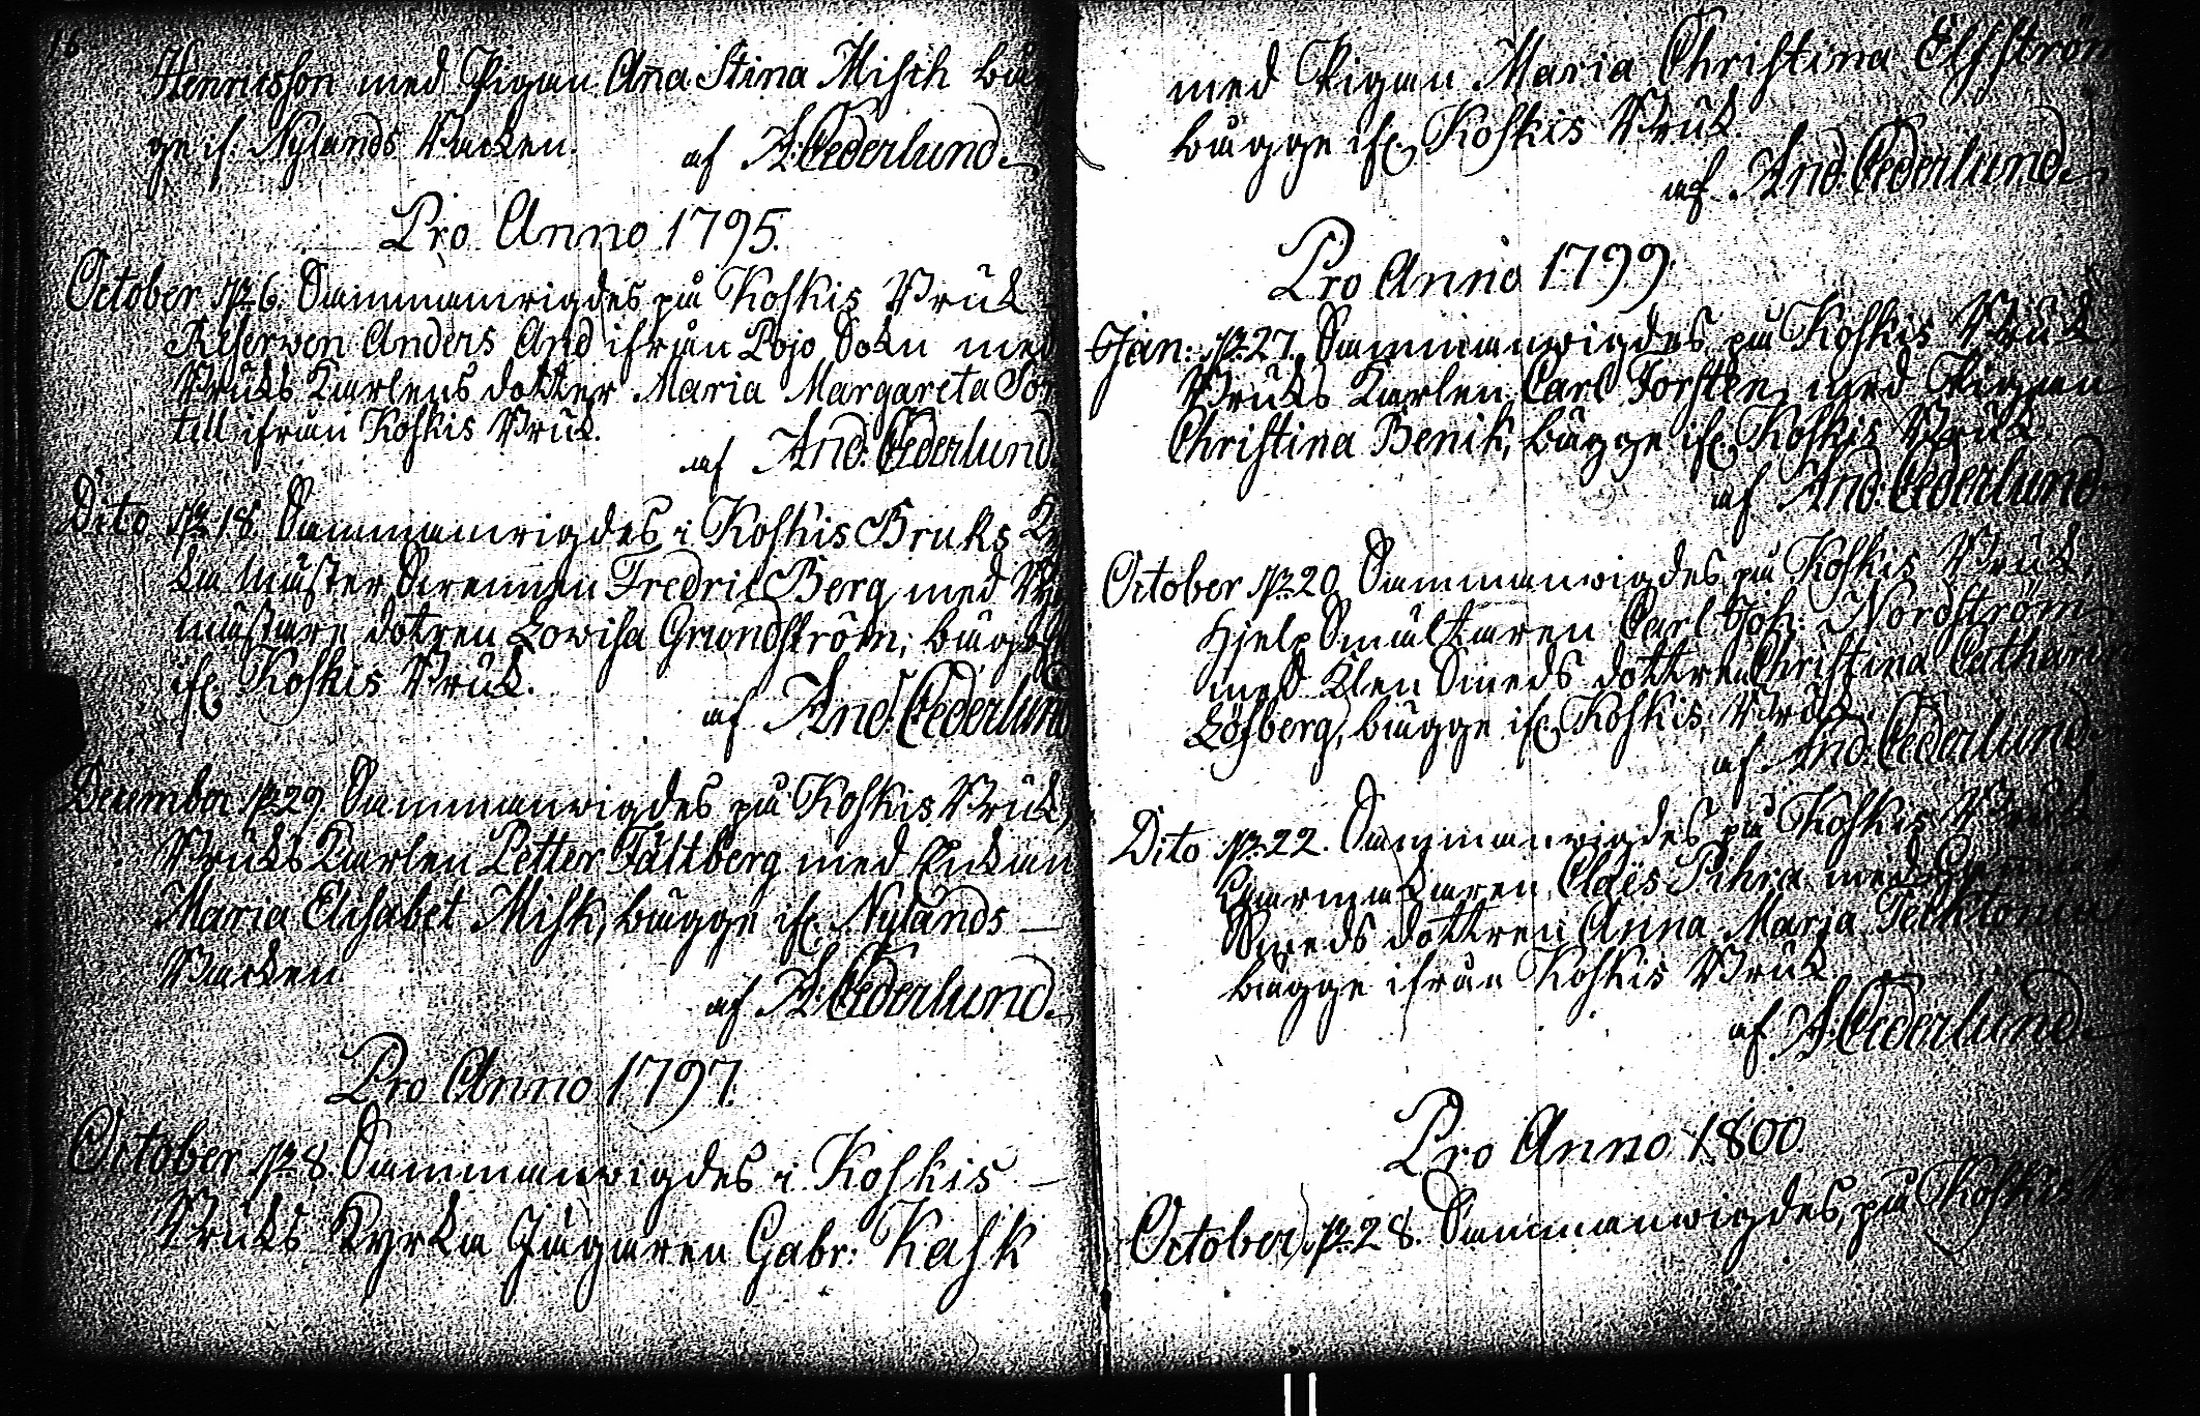 16
Henricsson med Pigan Ana Stina Misch båg
ge if: Nylands Backen.
af A: Cederlund.
Pro Anno 1795.
October d: 6. Sammanvigdes på Koskis Bruk
Reserven Anders And ifrån Pojo Sokn med
Bruks Karlens dotter Maria Margareta
till ifrån Koskis Bruk.
af And: Cederlund.
Dito d: 18. Sammanvigdes i Koskis Bruks
Mäster Svennen Fredric Berg med
mästare dotren Lowisa Grundström; bägge
if: Koskis Bruk.
af And: Cederlund
December d: 29. Sammanvigdes på Koskis Bruk,
Bruks Karlen Petter Fältberg med Enkan
Maria Elisabet Misk, bägge if: Nylands
Backen
af A: Cederlund.
Pro Anno 1797.
October d: 8. Sammanvigdes i Koskis
Bruks Kyrka Jägaren Gabr: Kask
med Pigan Maria Christina Elfström
bägge if: Koskis Bruk.
af And: Cederlund.
Pro Anno 1799.
Jan: d: 27. Sammanvigdes på Koskis Bruk
Bruks Karlen Carl Forsten med Pigan
Christina Benik, bägge if: Koskis Bruk.
af And: Cederlund
October d: 20. Sammanvigdes på Koskis Bruk,
Hjelp Smältaren Carl Joh: Nordström
med Klen Smeds dottren Christina Catharin
Löfberg, bägge if: Koskis Bruk.
af And: Cederlund.
Dito d: 22. Sammanvigdes på Koskis Bruk
Garmakaren Claës Pihra med
Smeds dottren Anna Maria
bägge ifrån Koskis Bruk
af A: Cederlund.
Pro Anno 1800.
October d: 28. Sammanvigdes, på Koskis